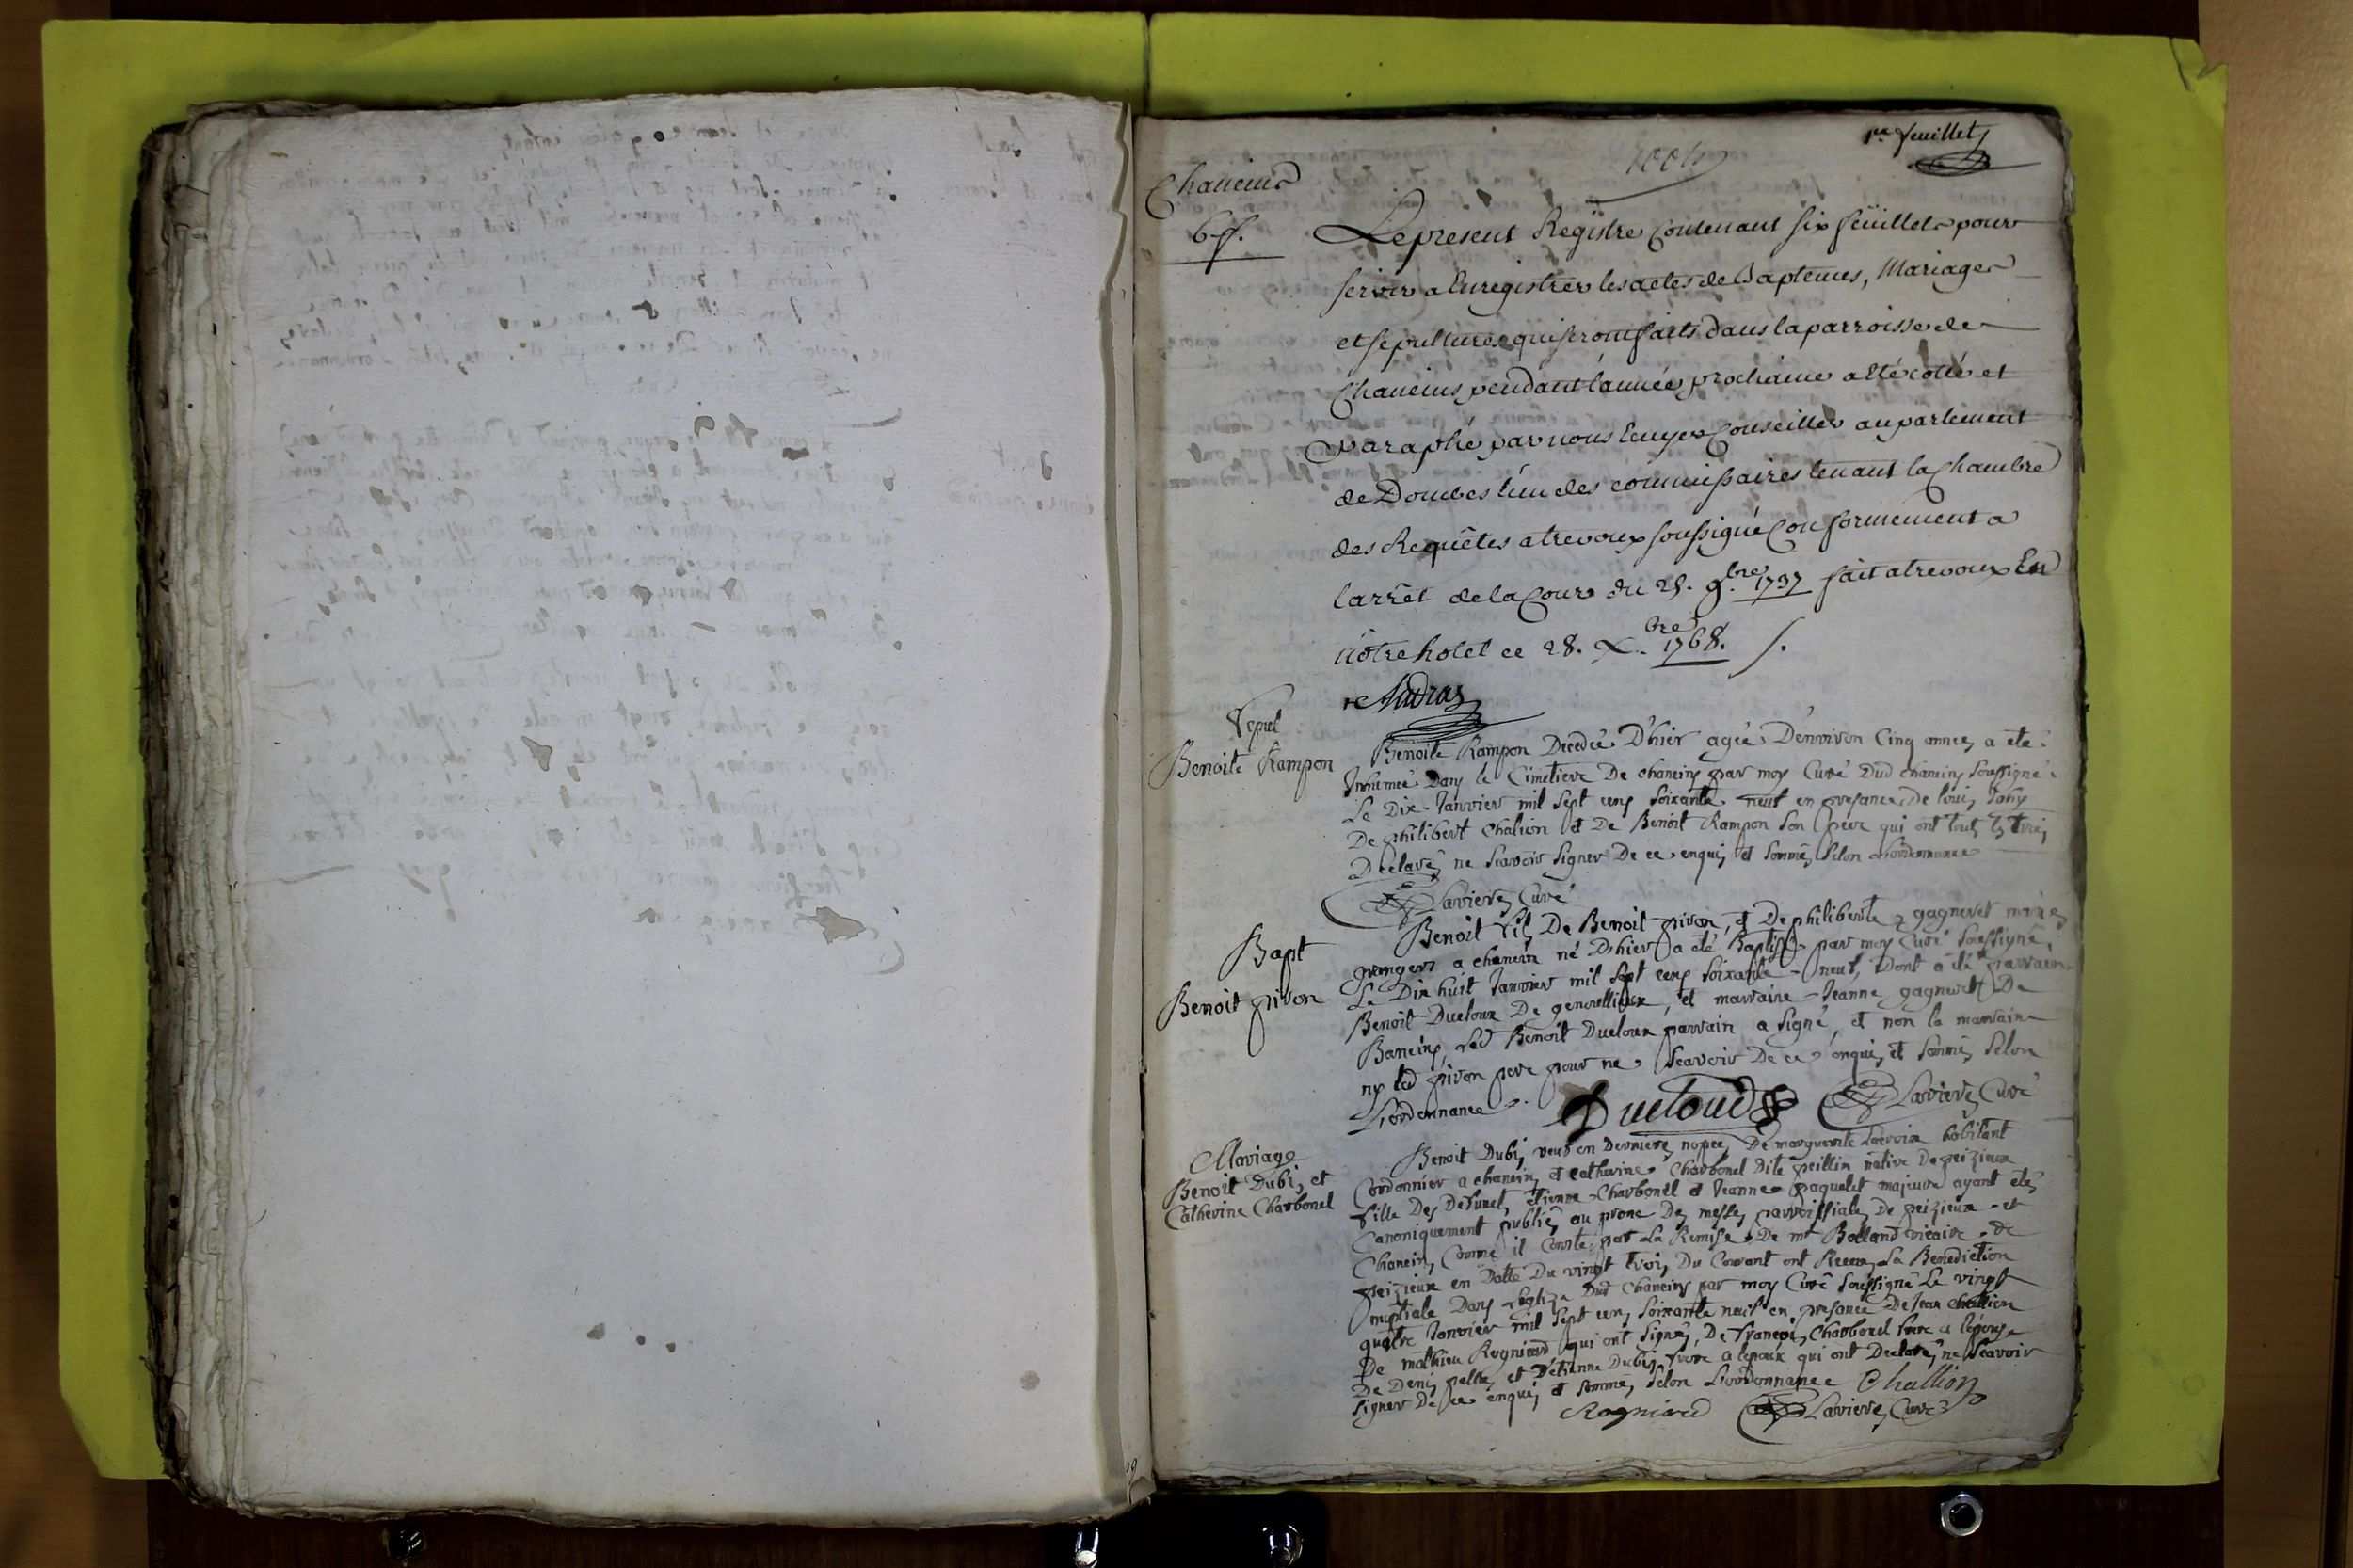 1er feuillet
Chaneins
6 f.
Le present Registre Contenant six feüillets pour
servir a Enregistrer les actes de Baptemes, Mariages
et sepultures qui seront faits dans la parroisse de
Chaneins pendant l'année prochaine a été cotté et
Paraphé par nous Ecuyer Conseiller au parlement
de Dombes l'un des commissaires tenant la Chambre
des Requêtes a trevoux soussigné Conformement a
l'arrêt de la Cour du 25. 9bre 1737 fait a trevoux En
nôtre hotel ce 28. Xbre 1768. /.
Andras
Sepul
Benoite Rampon
Benoite Rampon Decedée D'hier agée D'environ Cinq années a eté
Inhumée Dans le Cimetiere De chaneins par moy Curé Dud chaneins soussigné
Le Dix Janvier mil sept cens soixante neuf en presance De
De philibert Chalion et De Benoit Rampon son pere qui ont tous
Declarés ne scavoir signer De ce enquis et sommés selon L'ordonnance
Lavieres Curé
Bapt
Benoit pivon
Benoit fils De Benoit pivon, et De philiberte gagneret mariés
grangers a chanein né D'hier a eté Baptisé par moy Curé soussigné,
Le Dix huit Janvier mil sept cens soixante - neuf, Dont a été parrain
Benoit Ducloux De genouillieux, et marraine - Jeanne gagneret De
Baneins, Led Benoit Ducloux parrain a signé, et non la marraine
ny led pivon pere pour ne scavoir De ce enquis et sommés selon
L'ordonnance.
Ducloud Lavieres Curé
Mariage
Benoit Dubis et
Catherine Charbonel
Benoit Dubis veuf en Dernieres nopces De marguerite Lacroix habitant
Cordonnier a chaneins et catherine Charbonel Dite peillin native De peizieux
fille Des Defunct, etienne Charbonel et Jeanne paquelet majeure ayant étés
Canoniquement publiés au prone Des messes parroissiales De peizieux et
Chaneins Comme il Conste par La Remise De mr Bolland vicaire De
peizieux en Datte Du vingt trois Du Courant ont Receu La Benediction
nuptiale Dans L'eglize Dud Chaneins par moy Curé soussigné Le vingt
quatre Janvier mil sept cens soixante neuf en presance De Jean Challion
De mathieu Rogniard qui ont signés, De francois Charbonel frere a l'epouse
De Denis pelle, et D'étienne Dubis frere a l'epoux qui ont Declarés ne scavoir
signer De ce enquis et sommés selon L'ordonnance Challion
Rogniard Lavieres Curé